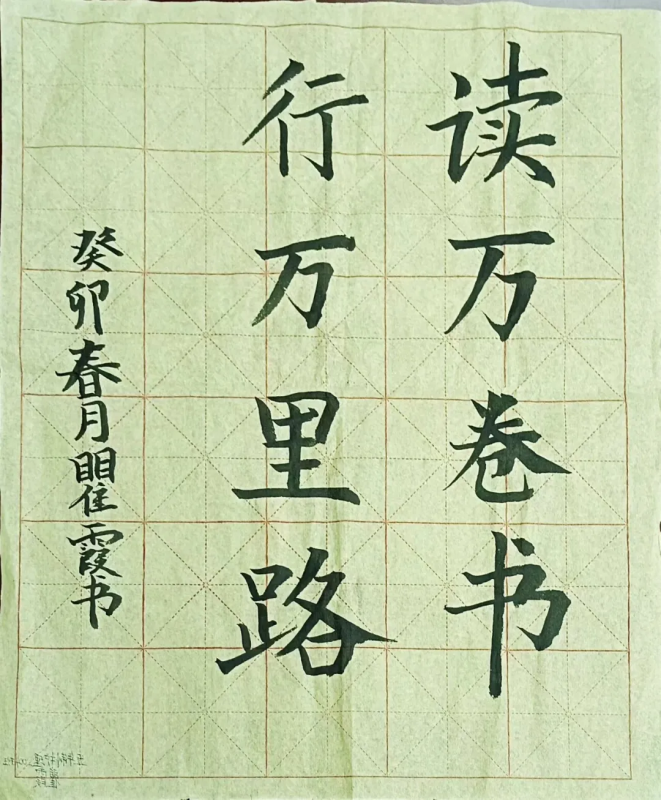 读万卷书
行万里路
癸卯春月瞿霞书